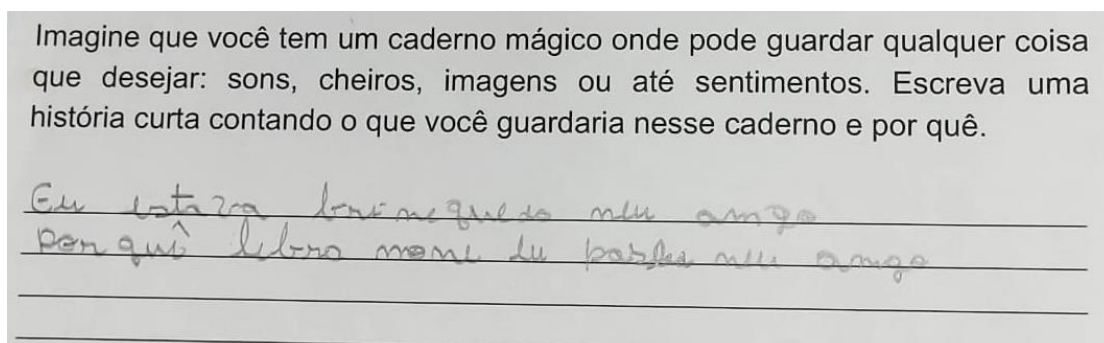 Imagine que você tem um caderno mágico onde pode guardar qualquer coisa
que desejar: sons, cheiros, imagens ou até sentimentos. Escreva uma
história curta contando o que você guardaria nesse caderno e por quê.
Eu meu amgo
Por quê meu amigo